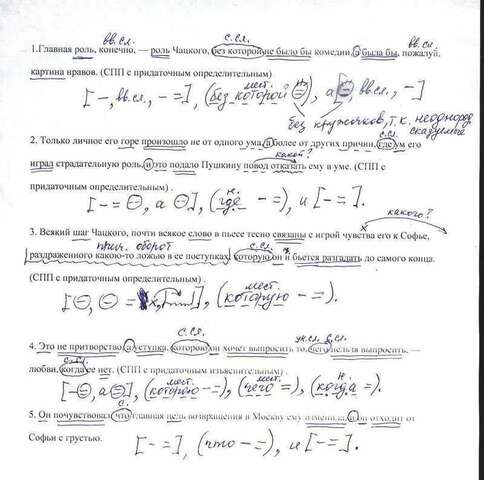 вв.сл. с.сл. вв.сл.
1.Главная роль, конечно, — роль Чацкого, без которой не было бы комедии, а была бы, пожалуй,
картина нравов. (СПП с придаточным определительным)
[ – , вв.сл., – = ], (без которой =), а [ = , вв.сл., – ]
мест.
без кружочков, т.к. неоднород
сказуемые
2. Только личное его горе произошло не от одного ума, а более от других причин, где ум его
с.сл.
играл страдательную роль, и это подало Пушкину повод отказать ему в уме. (СПП с
какой?
придаточным определительным) .
[ – = ⊖, а ⊖ ], (где – =), и [ – = ].
н.
какого?
3. Всякий шаг Чацкого, почти всякое слово в пьесе тесно связаны с игрой чувства его к Софье,
прич. оборот с.сл.
раздраженного какою-то ложью в ее поступках, которую он и бьется разгадать до самого конца.
(СПП с придаточным определительным) .
мест.
[ ⊖, ⊖ = х, ], (которую – =).
с.сл. ук.сл. с.сл.
4. Это не притворство, а уступка, которою он хочет выпросить то, чего нельзя выпросить, —
с.сл.
любви, когда ее нет. (СПП с придаточным изъяснительным) .
мест. мест. н.
[ – ⊖, а ⊖ ], (которою – =), (чего =), (когда =).
с.
5. Он почувствовал, что главная цель возвращения в Москву ему изменила, и он отходит от
Софьи с грустью.
[ – = ], (что – =), и [ – = ].